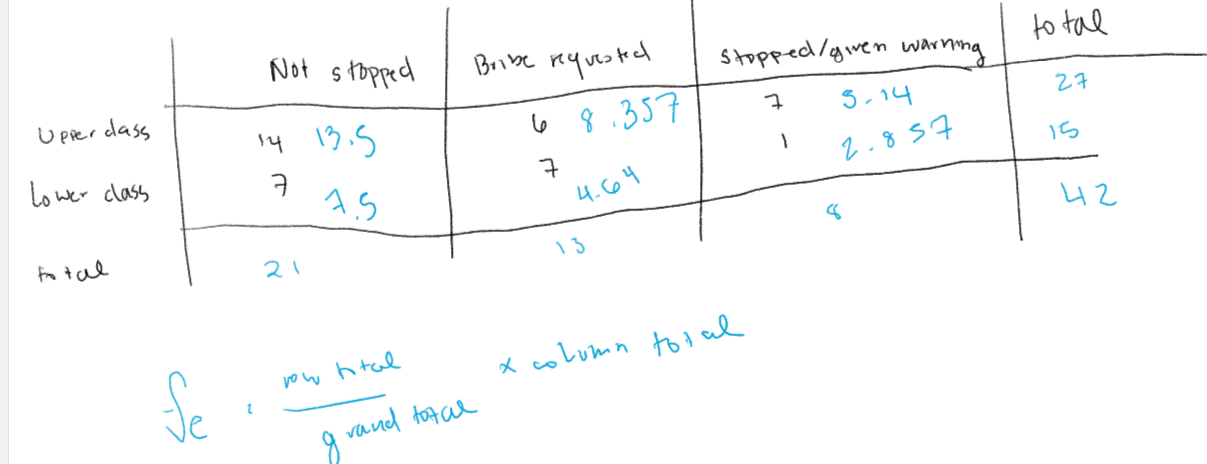 Not stopped Bribe requested stopped/given warning total
Upper class 14 13.5 6 8.357 7 5.14 27
Lower class 7 7.5 7 4.64 1 2.857 15
total 21 13 8 42
fe = row total / grand total x column total